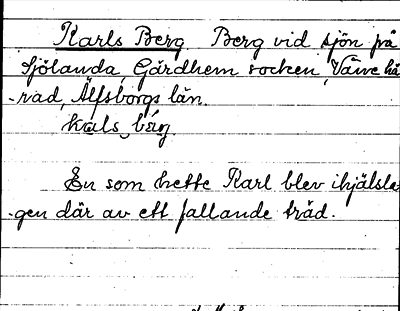 Karls Berg Berg vid sjön på
Sjölanda, Gärdhem socken, Väne hä
-rad, Älfsborgs län.
kals bäŋ
En som hette Karl blev ihjälsla
-gen där av ett fallande träd.